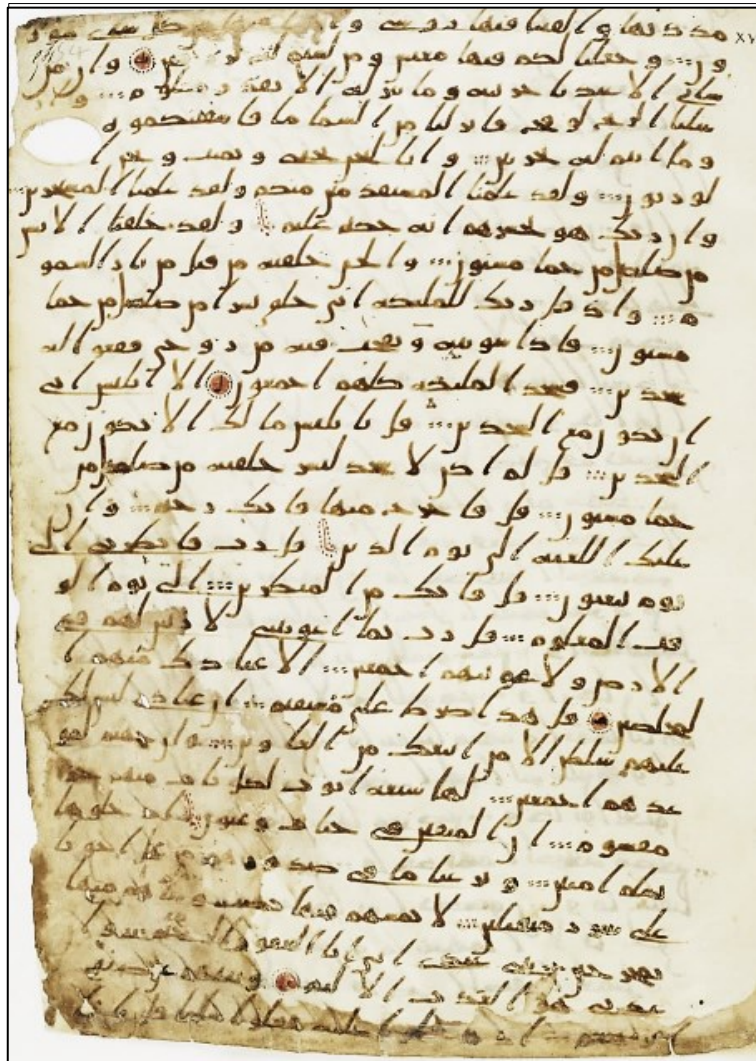 مددنها والقينا فيها روسي وانبتنا فيها من كل شي موز
ون وجعلنا لكم فيها معيش ومن لستم له برزقين وان من
شاي الا عندنا خزينه وما ننزله الا بقدر معلوم وار
سلنا الريح لوقح فانزلنا من السما ما فاسقينكموه
وما انتم له بخزنين وانا لنحن نحيي ونميت ونحن ا
لورثون ولقد علمنا المستقدمين منكم ولقد علمنا المستخرين
وان ربك هو يحشرهم انه حكيم عليم ولقد خلقنا الانسن
من صلصل من حما مسنون والجن خلقنه من قبل من نار السمو
م واذ قل ربك للمليكه اني خلق بشرا من صلصل من حما
مسنون فاذا سويته ونفخت فيه من روحي فقعوا له
سجدين فسجد المليكه كلهم اجمعون الا ابليس ابى
ان يكون مع السجدين قل يابليس ما لك الا تكون مع
السجدين قل لم اكن لاسجد لبشر خلقته من صلصل من
حما مسنون قل فاخرج منها فانك رجيم وان
عليك اللعنه الى يوم الدين قل رب فانظرني الى
يوم يبعثون قل فانك من المنظرين الى يوم الو
قت المعلوم قل رب بما اغويتني لازينن لهم في
الارض ولاغوينهم اجمعين الا عبادك منهم ا
لمخلصين قل هذا صرط علي مستقيم ان عبادي ليس لك
عليهم سلطن الا من اتبعك من الغاوين وان جهنم لمو
عدهم اجمعين لها سبعه ابوب لكل باب منهم جز
مقسوم ان المتقين في جنت وعيون ادخلوها
بسلم امنين ونزعنا ما في صدورهم من غل اخونا
على سرر متقبلين لا يمسهم فيها نصب وما هم منها
بمخرجين نبي عبادي اني انا الغفور الرحيم
عذابي هو العذاب الاليم ونبيهم عن ضيف
ابرهيم اذ دخلوا عليه فقالوا سلما قل انا